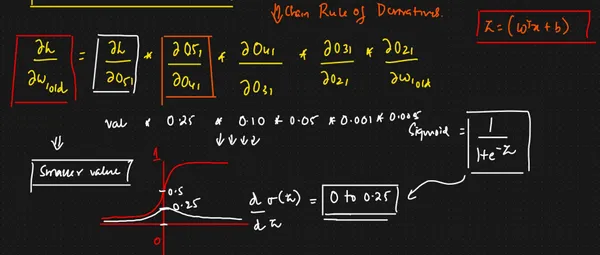 ⇓ Chain Rule of Derivatives.
z = (wᵀx + b)
∂L/∂w₁old = ∂L/∂O51 * ∂O51/∂O41 * ∂O41/∂O31 * ∂O31/∂O21 * ∂O21/∂w₁old
val * 0.25 * 0.10 * 0.05 * 0.001 * 0.005
⇓ ↓↓↓↓
Sigmoid = 1/(1+e^-z)
Smaller value
1
0.5
0.25
0
d σ(z)/dz = 0 to 0.25